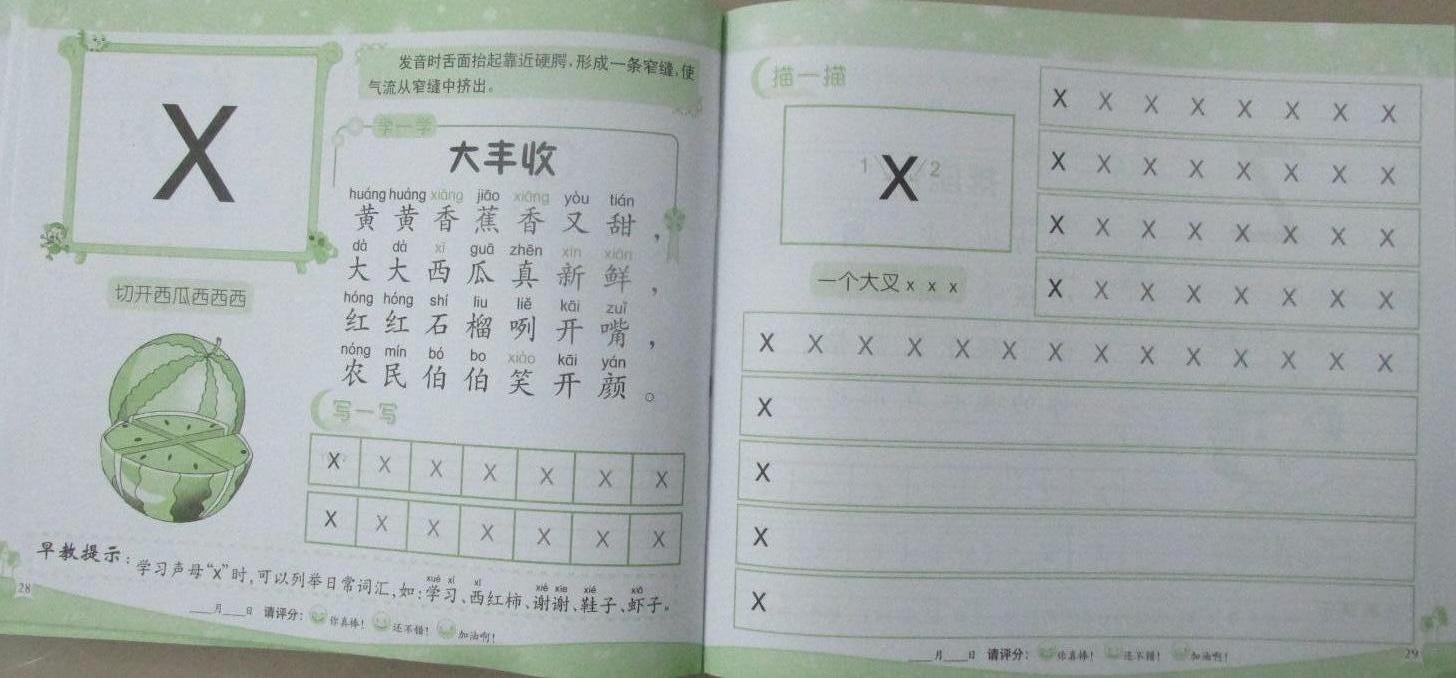 x
发音时舌面抬起靠近硬腭,形成一条窄缝,使
气流从窄缝中挤出。
学一学
大丰收
huáng huáng xiāng jiāo xiāng yòu tián
黄黄香蕉香又甜，
dà dà xī guā zhēn xīn xiān
大大西瓜真新鲜，
hóng hóng shí liu liě kāi zuǐ
红红石榴咧开嘴，
nóng mín bó bo xiào kāi yán
农民伯伯笑开颜。
切开西瓜西西西
写一写
x x x x x x x
x x x x x x x
xué xí xī xiè xie xié xiā
早教提示:学习声母“x”时,可以列举日常词汇,如:学习、西红柿、谢谢、鞋子、虾子。
28
____月____日 请评分: 你真棒! 还不错! 加油啊!
描一描
1 x 2
一个大叉 x x x
x x x x x x x x
x x x x x x x x
x x x x x x x x
x x x x x x x x
x x x x x x x x x x x x x x
x
x
x
x
____月____日 请评分: 你真棒! 还不错! 加油啊!
29